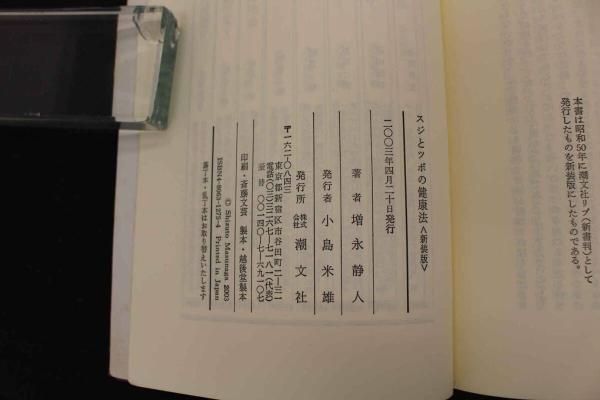 本書は昭和50年に潮文社リブ（新書判）として
発行したものを新装版にしたものである。
スジとツボの健康法〈新装版〉
二〇〇三年四月二十日発行
著者 増永静人
発行者 小島米雄
発行所 株式会社 潮文社
〒一六二-〇八四三
東京都新宿区市谷田町二-三一
電話(〇三)三二六七-七一八一(代表)
振替 〇〇一四〇-七-六九一〇七
印刷・斎藤文芸 製本・越後堂製本
© Shizuto Masunaga 2003
ISBN4-8063-1275-4 Printed in Japan
落丁本・乱丁本はお取り替えいたします